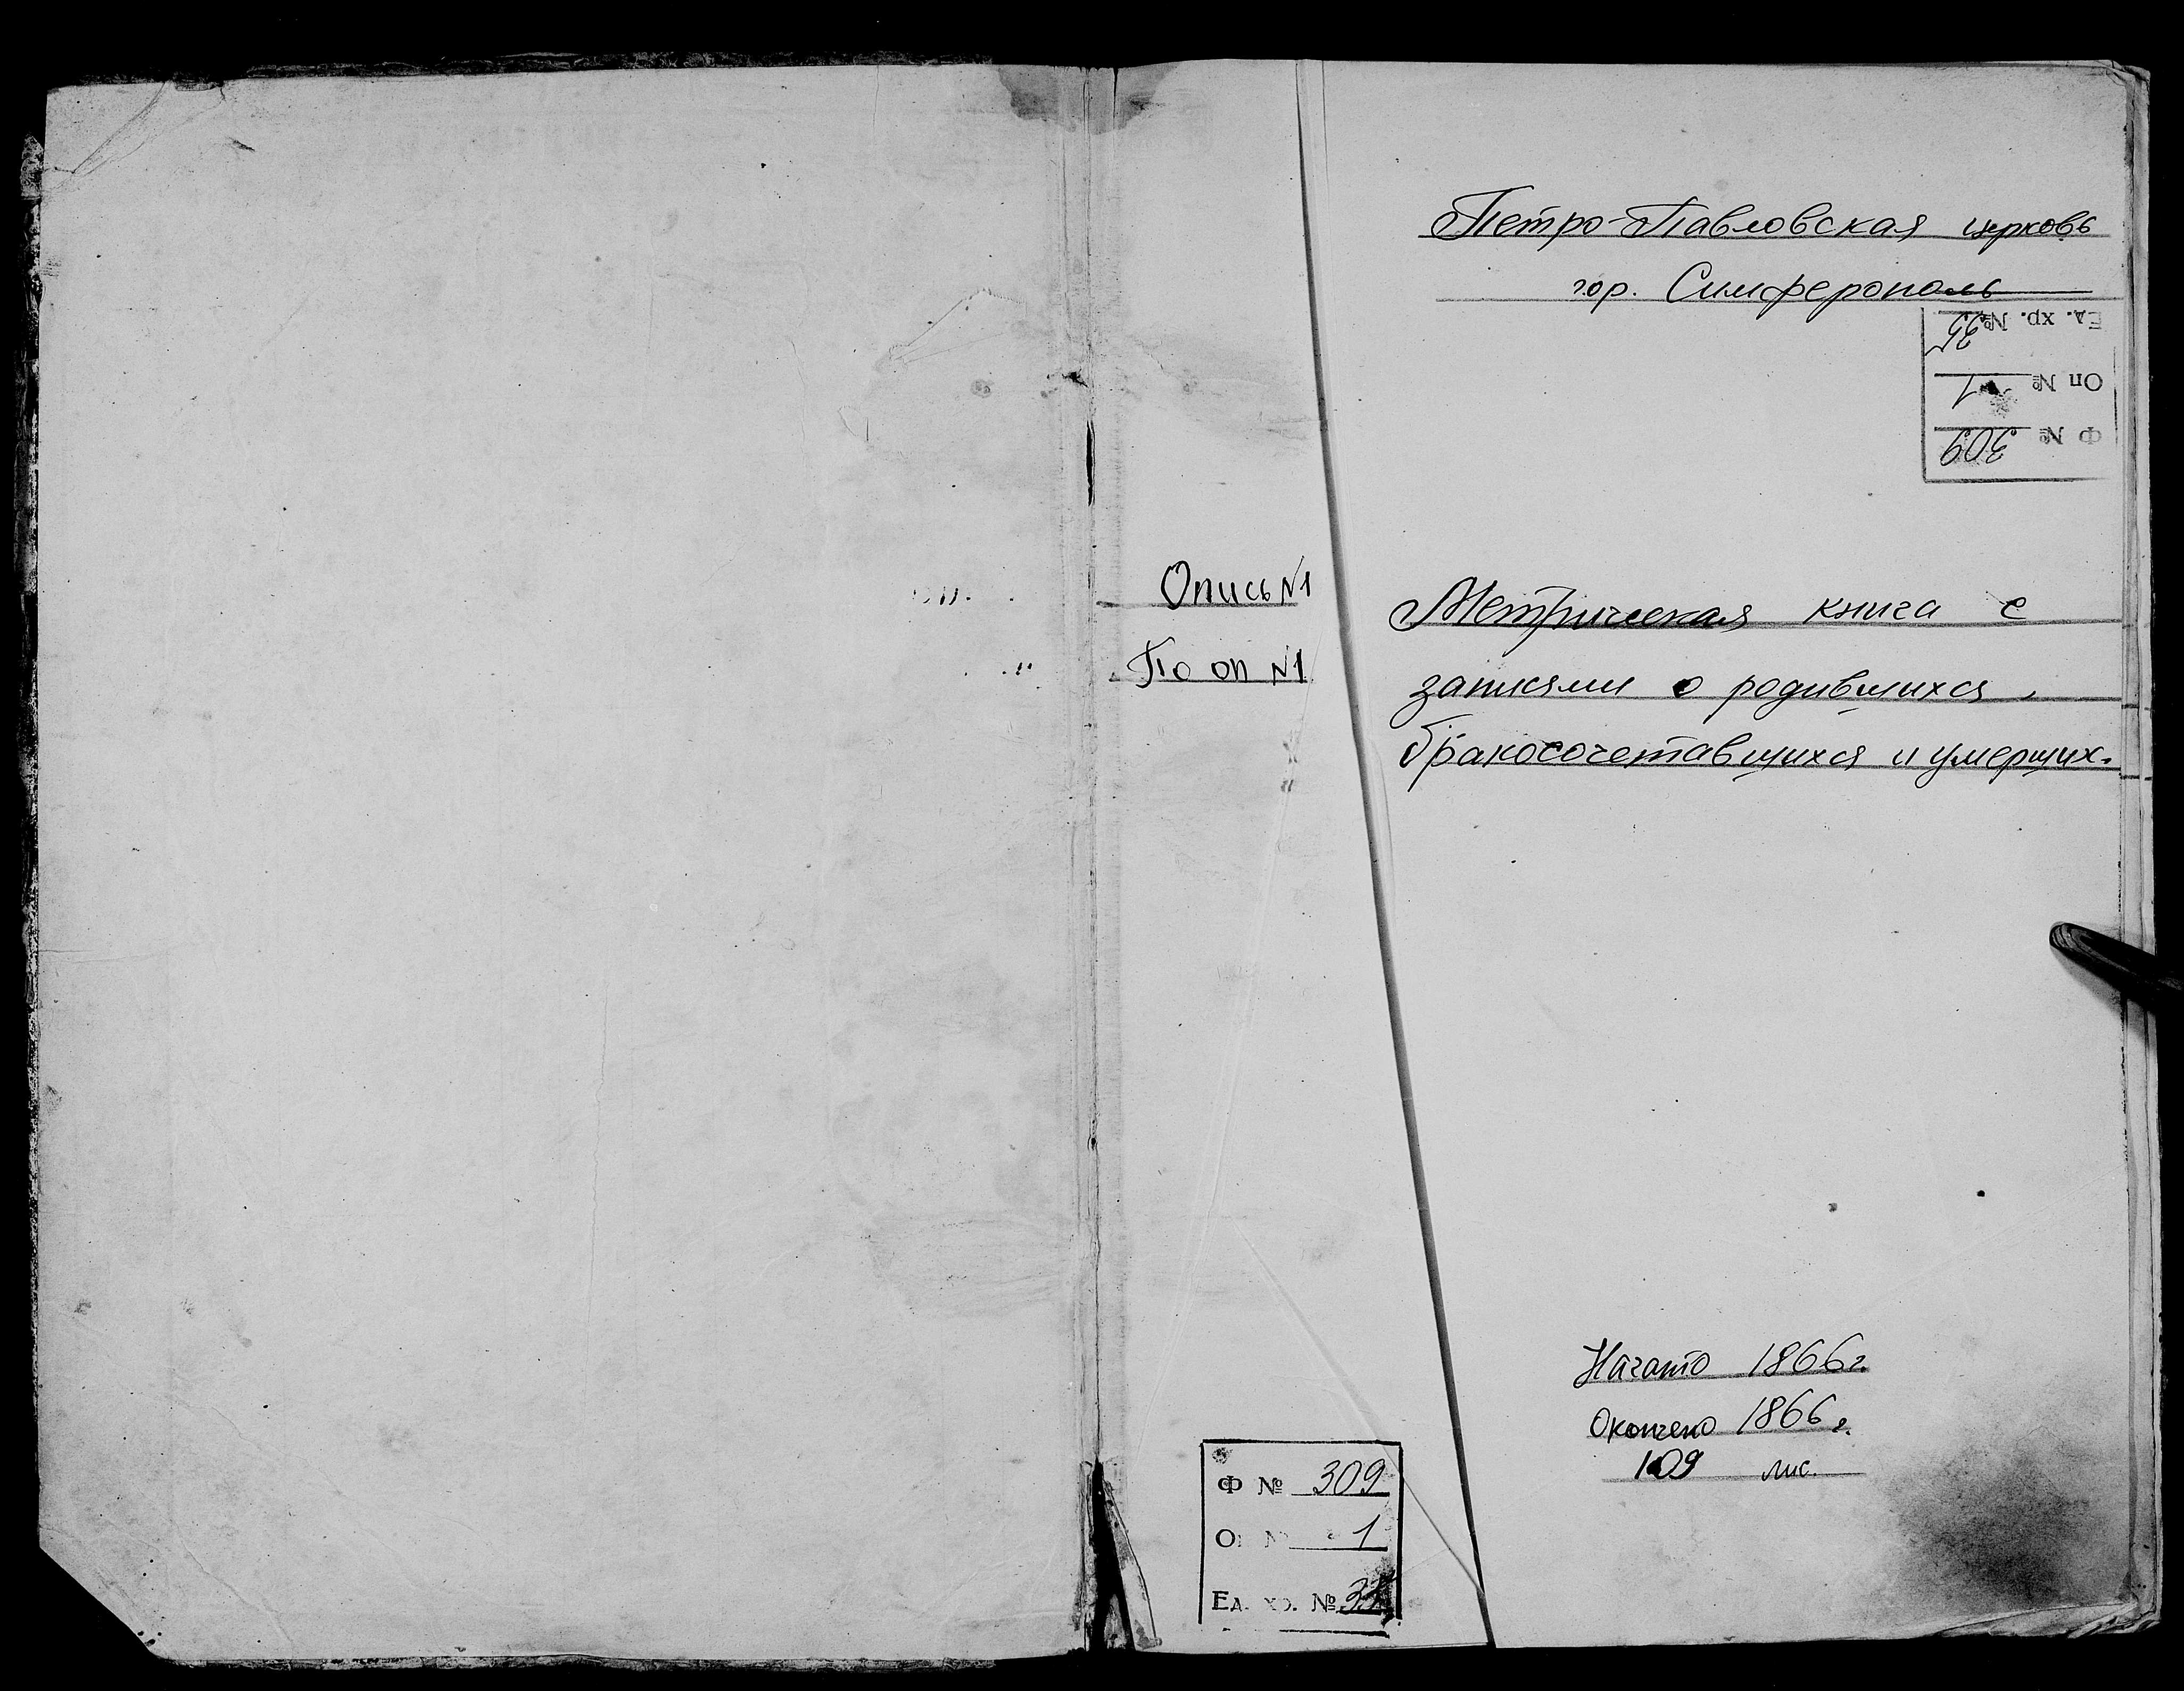 Петро-Павловская церковь
гор. Симферополь
Ед. хр. №
Оп № 1
Ф № 309
Опись №1
По оп №1
Метрическая книга с
записями о родившихся,
бракосочетавшихся и умерших.
Начато 1866г.
Окончено 1866г.
109 лис.
Ф № 309
Оп № 1
Ед. хр. №